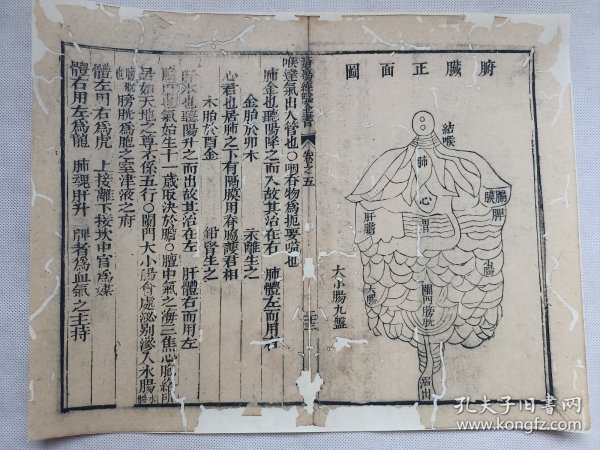 圖面正臟腑
結喉
肺
心
胃
脾
肝
膽
大腸
小腸
關門
膀胱
大小腸九盤
卷之五
喉達氣出入管也〇咽吞物爲扼要嗌也
肺金也聽陽降之而入故其治在右 肺體左而用右
金胎於卯木 汞離生之
心君也居肺之下有隔膜用脊膂護君相
木胎於酉金 鉗腎生之
木也聽陽升之而出故其治在左 肝體右而用左
也氣始生十一歲取決於膽〇膻中氣之海三焦心
居如天地之尊不係五行〇關門大小腸合處泌別滲入水腸
膀胱爲胞之室津液之府
體左用右爲虎 上接離下接坎中宮爲媒
體右用左爲龍 肺魂肝升 脾者爲血氣之主持
孔夫子旧书网
www.kongfz.com